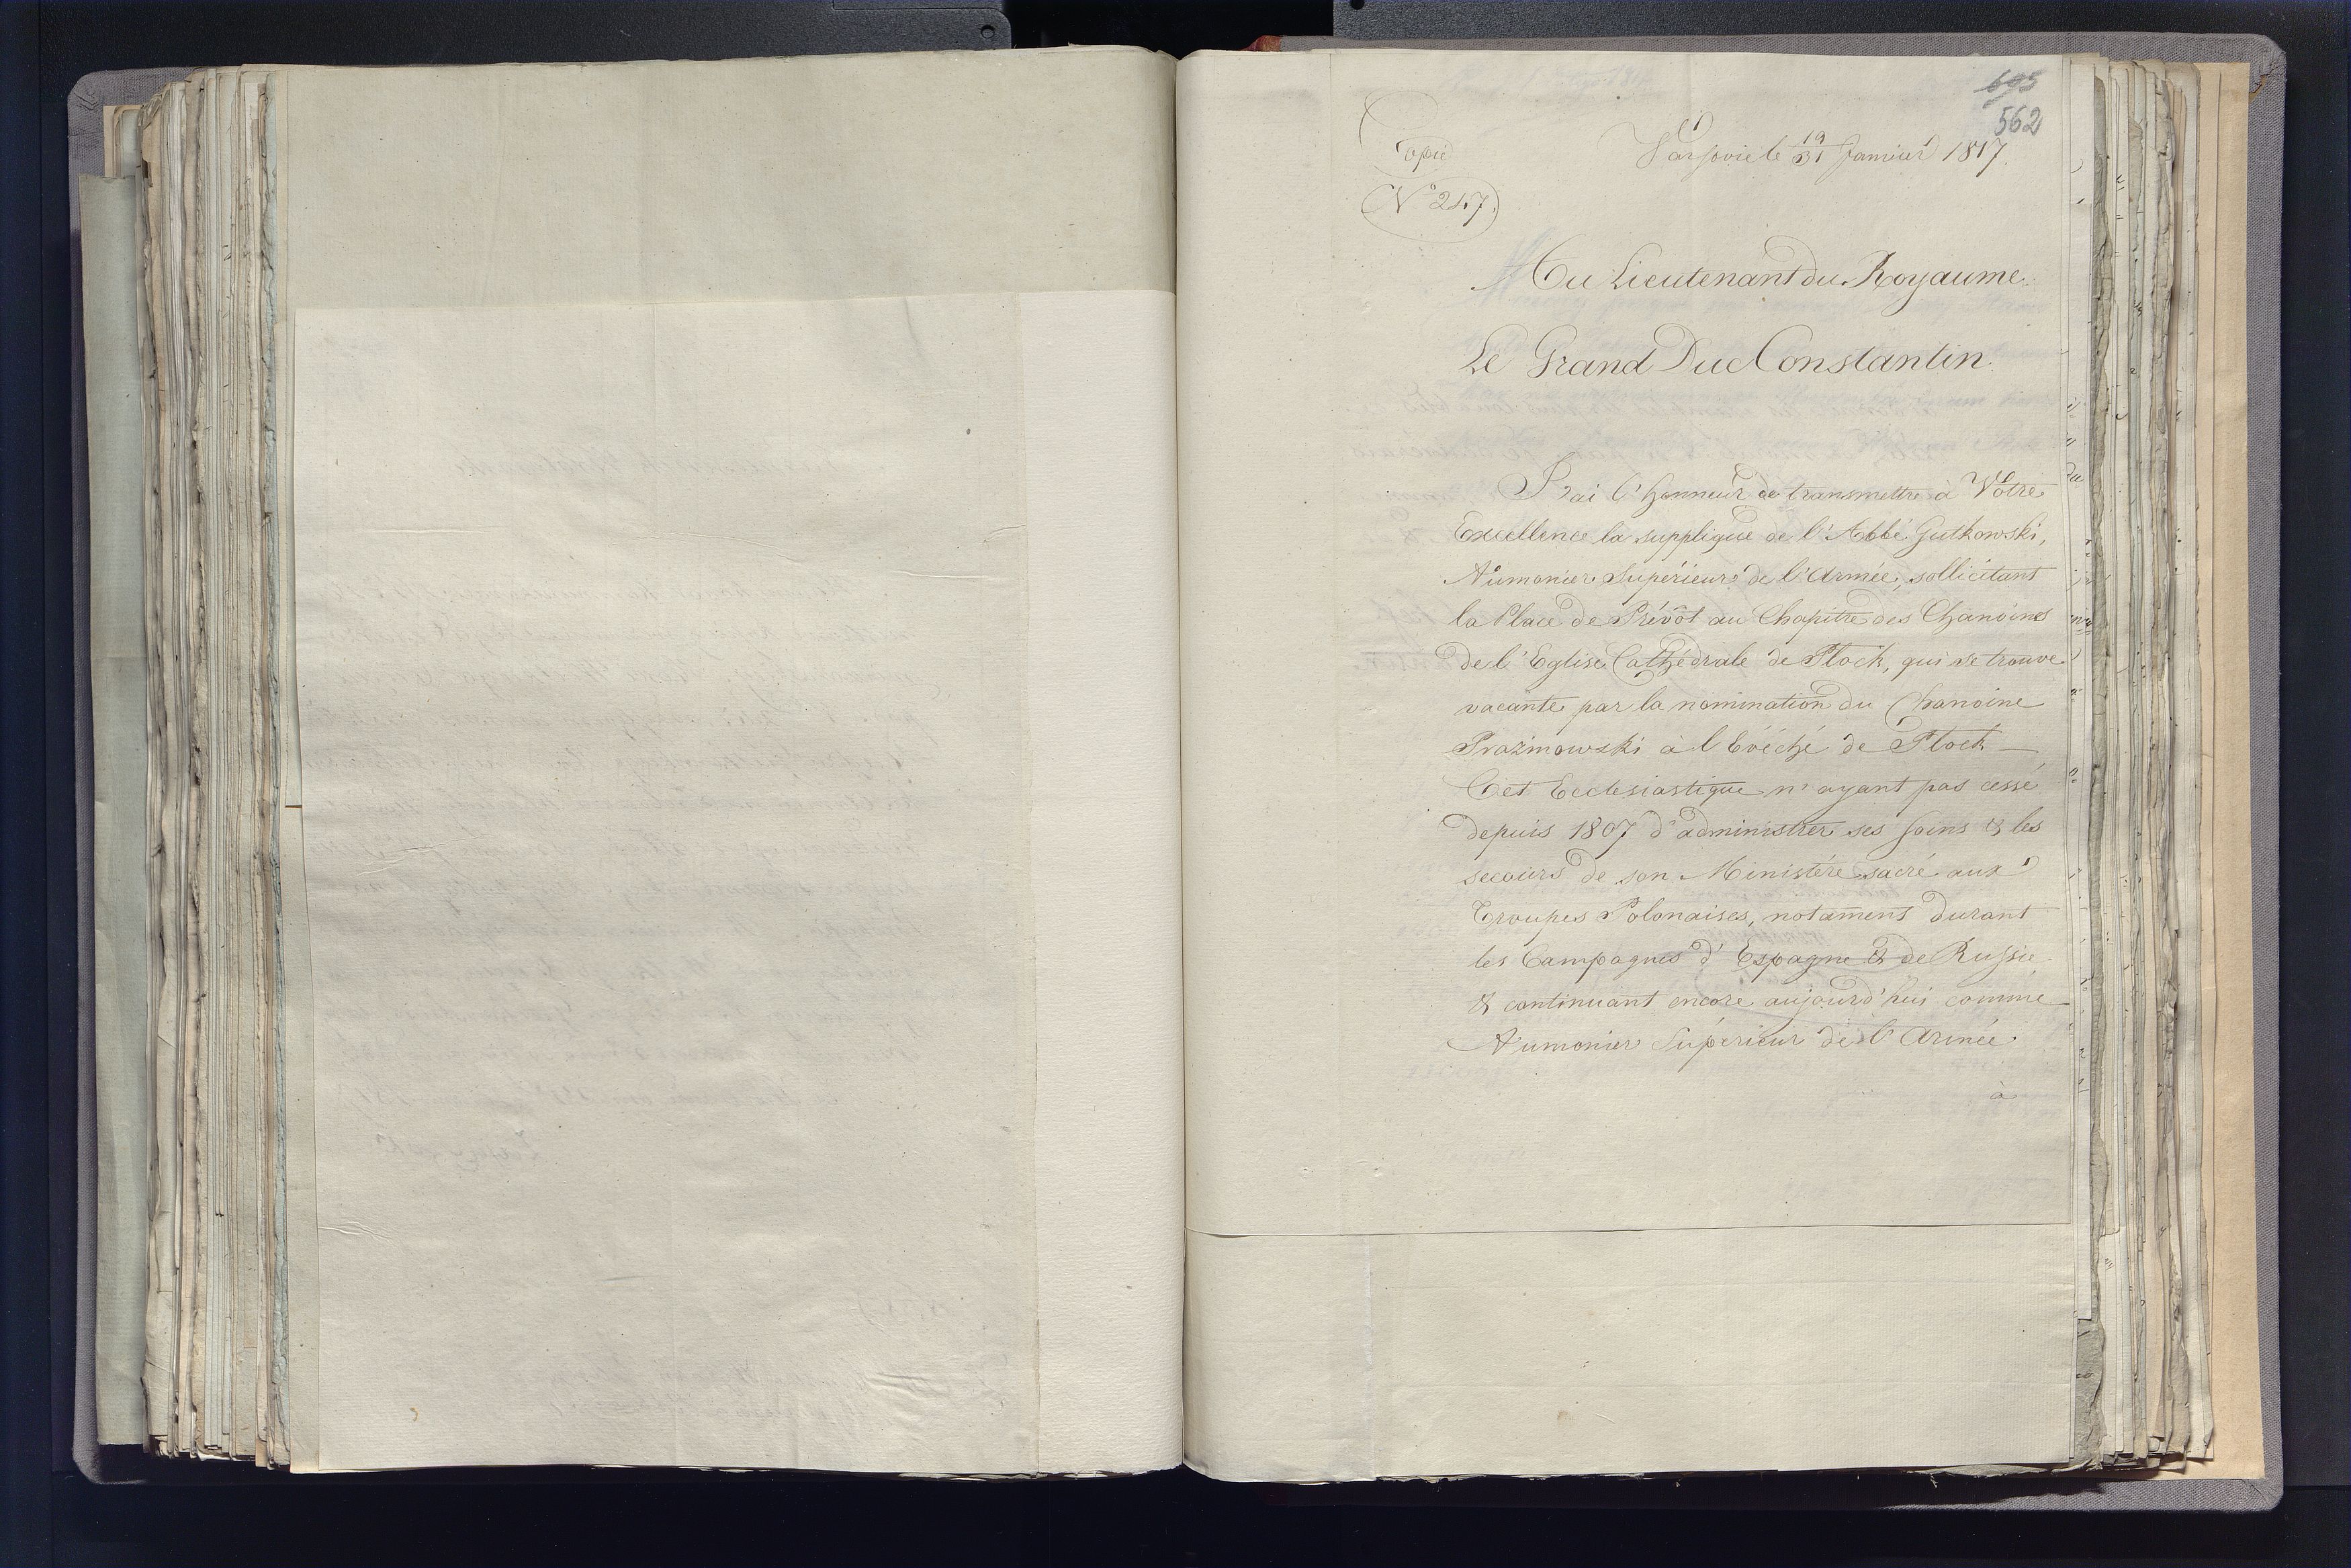 605
562
Copie
Varsovie le 19/31 Janvier 1817.
N° 247.
Au Lieutenant du Royaume.
Le Grand Duc Constantin.
J'ai l'honneur de transmettre à Votre
Excellence la supplique de l'Abbé Gutkowski,
Aumonier Supérieur de l'Armée, sollicitant
la Place de Prévôt au Chapitre des Chanoines
de l'Eglise Cathédrale de Płock, qui se trouve
vacante par la nomination du Chanoine
Prażmowski à l'Evéché de Płock —
Cet Ecclesiastique n'ayant pas cessé
depuis 1807 d'administrer ses soins & les
secours de son Ministère sacré aux
Troupes Polonaises, notament durant
les Campagnes d'Espagne & de Russie
& continuant encore aujourd'hui comme
Aumonier Supérieur de l'Armée
à